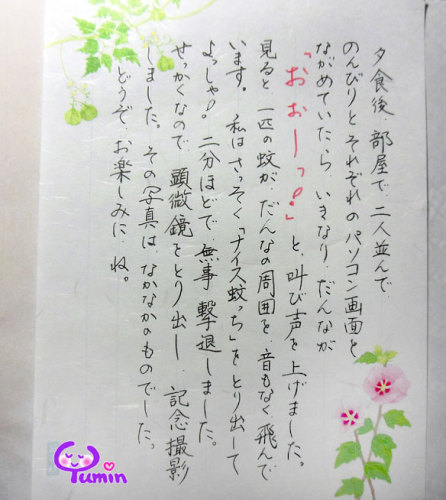 夕食後、部屋で、二人並んで
のんびりとそれぞれのパソコン画面を
ながめていたら、いきなり、だんなが
「おぉーっ!」と、叫び声を上げました。
見ると、一匹の蚊が、だんなの周囲を、音もなく飛んで
います。私はさっそく「ナイス蚊っち」をとり出して
よっしゃ! 二分ほどで、無事撃退しました。
せっかくなので、顕微鏡をとり出し、記念撮影
しました。その写真は、なかなかのものでした。
どうぞ、お楽しみに、ね。
Yumin